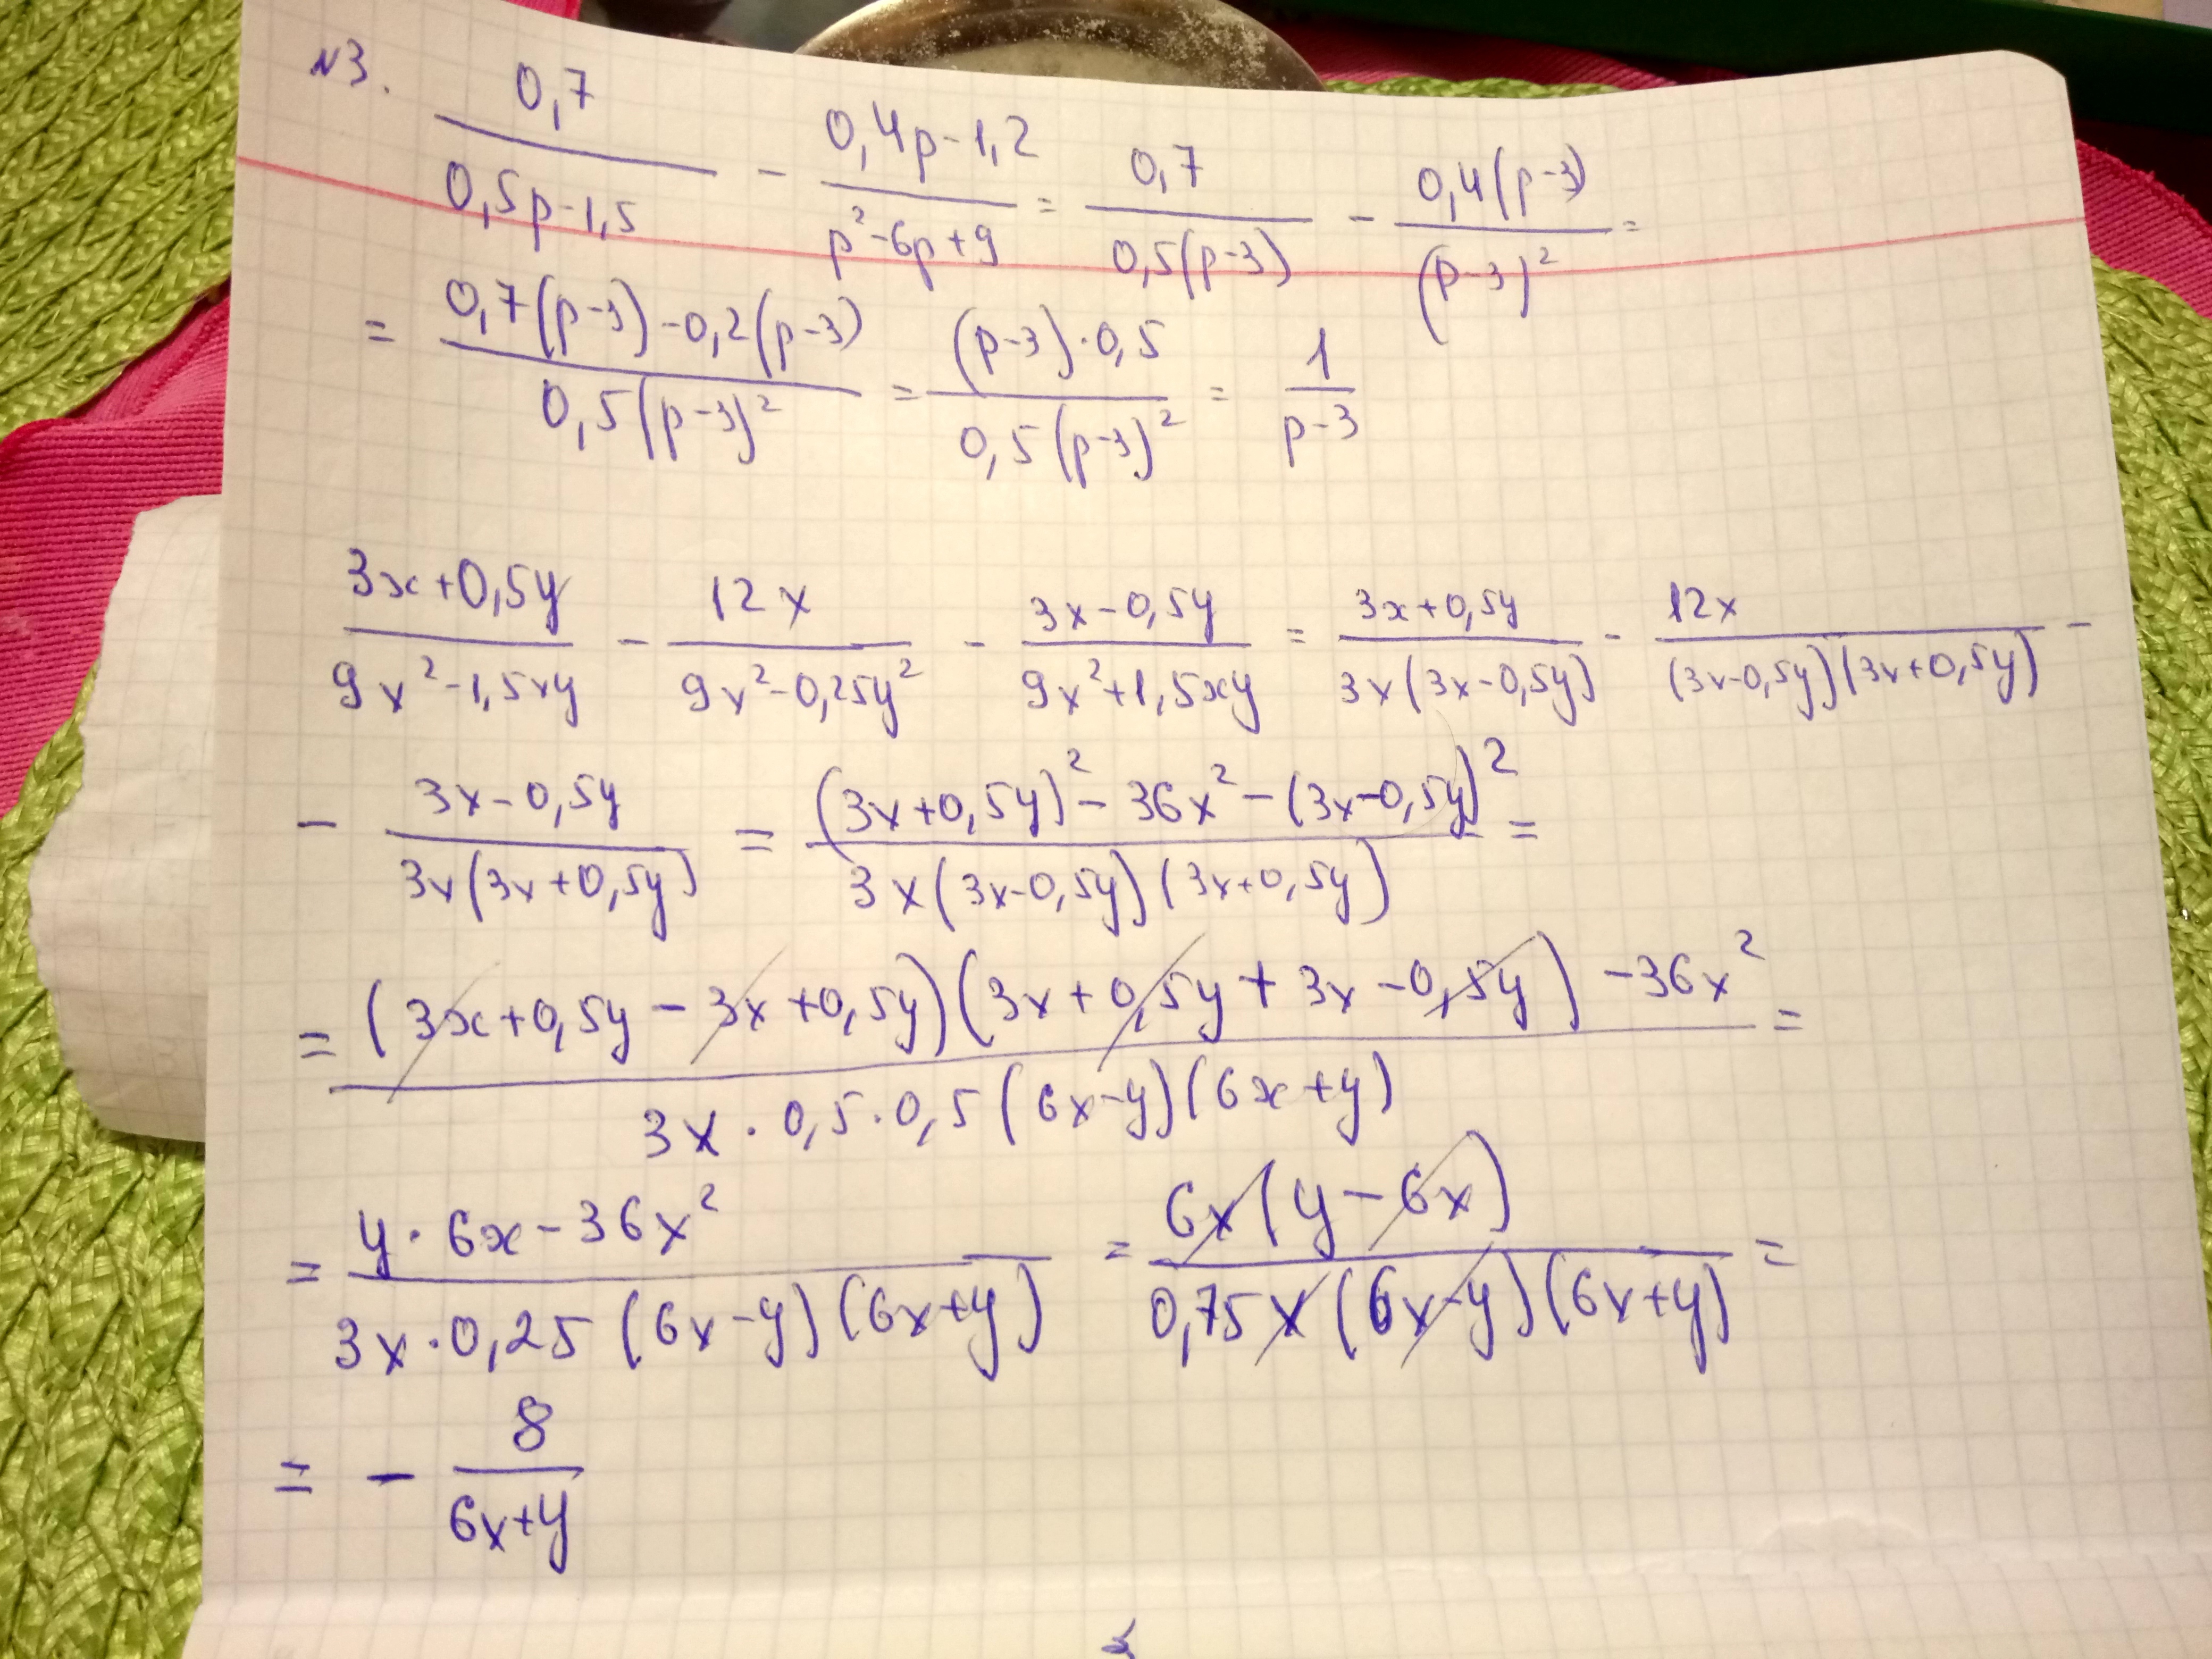 N3. 0,7/(0,5p-1,5) - (0,4p-1,2)/(p²-6p+9) = 0,7/(0,5(p-3)) - 0,4(p-3)/(p-3)² =
= (0,7(p-3)-0,2(p-3))/(0,5(p-3)²) = ((p-3)·0,5)/(0,5(p-3)²) = 1/(p-3)
(3x+0,5y)/(9x²-1,5xy) - 12x/(9x²-0,25y²) - (3x-0,5y)/(9x²+1,5xy) = (3x+0,5y)/(3x(3x-0,5y)) - 12x/((3x-0,5y)(3x+0,5y)) -
- (3x-0,5y)/(3x(3x+0,5y)) = ((3x+0,5y)²-36x²-(3x-0,5y)²)/(3x(3x-0,5y)(3x+0,5y)) =
= ((3x+0,5y-3x+0,5y)(3x+0,5y+3x-0,5y)-36x²)/(3x·0,5·0,5(6x-y)(6x+y)) =
= (y·6x-36x²)/(3x·0,25(6x-y)(6x+y)) = 6x(y-6x)/(0,75x(6x-y)(6x+y)) =
= - 8/(6x+y)